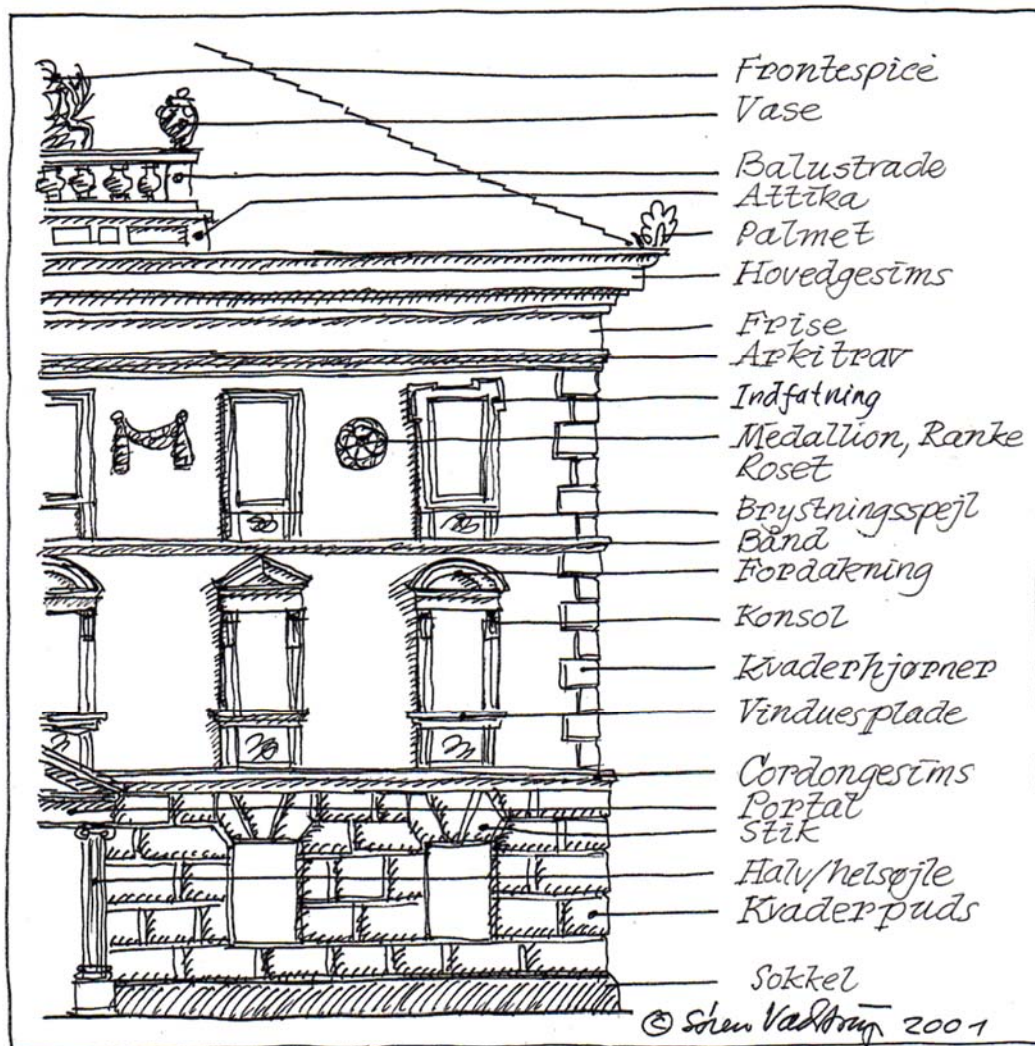 Frontespice
Vase
Balustrade
Attika
Palmet
Hovedgesims
Frise
Arkitrav
Indfatning
Medallion, Ranke
Roset
Brystningsspejl
Bånd
Fordakning
Konsol
Kvaderhjørner
Vinduesplade
Cordongesims
Portal
Stik
Halv/helsøjle
Kvaderpuds
Sokkel
© Søren Vadstrup 2001